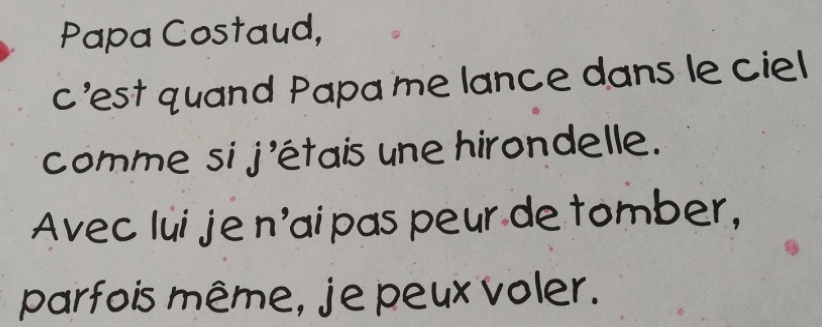 Papa Costaud,
c'est quand Papa me lance dans le ciel
comme si j'étais une hirondelle.
Avec lui je n'ai pas peur de tomber,
parfois même, je peux voler.